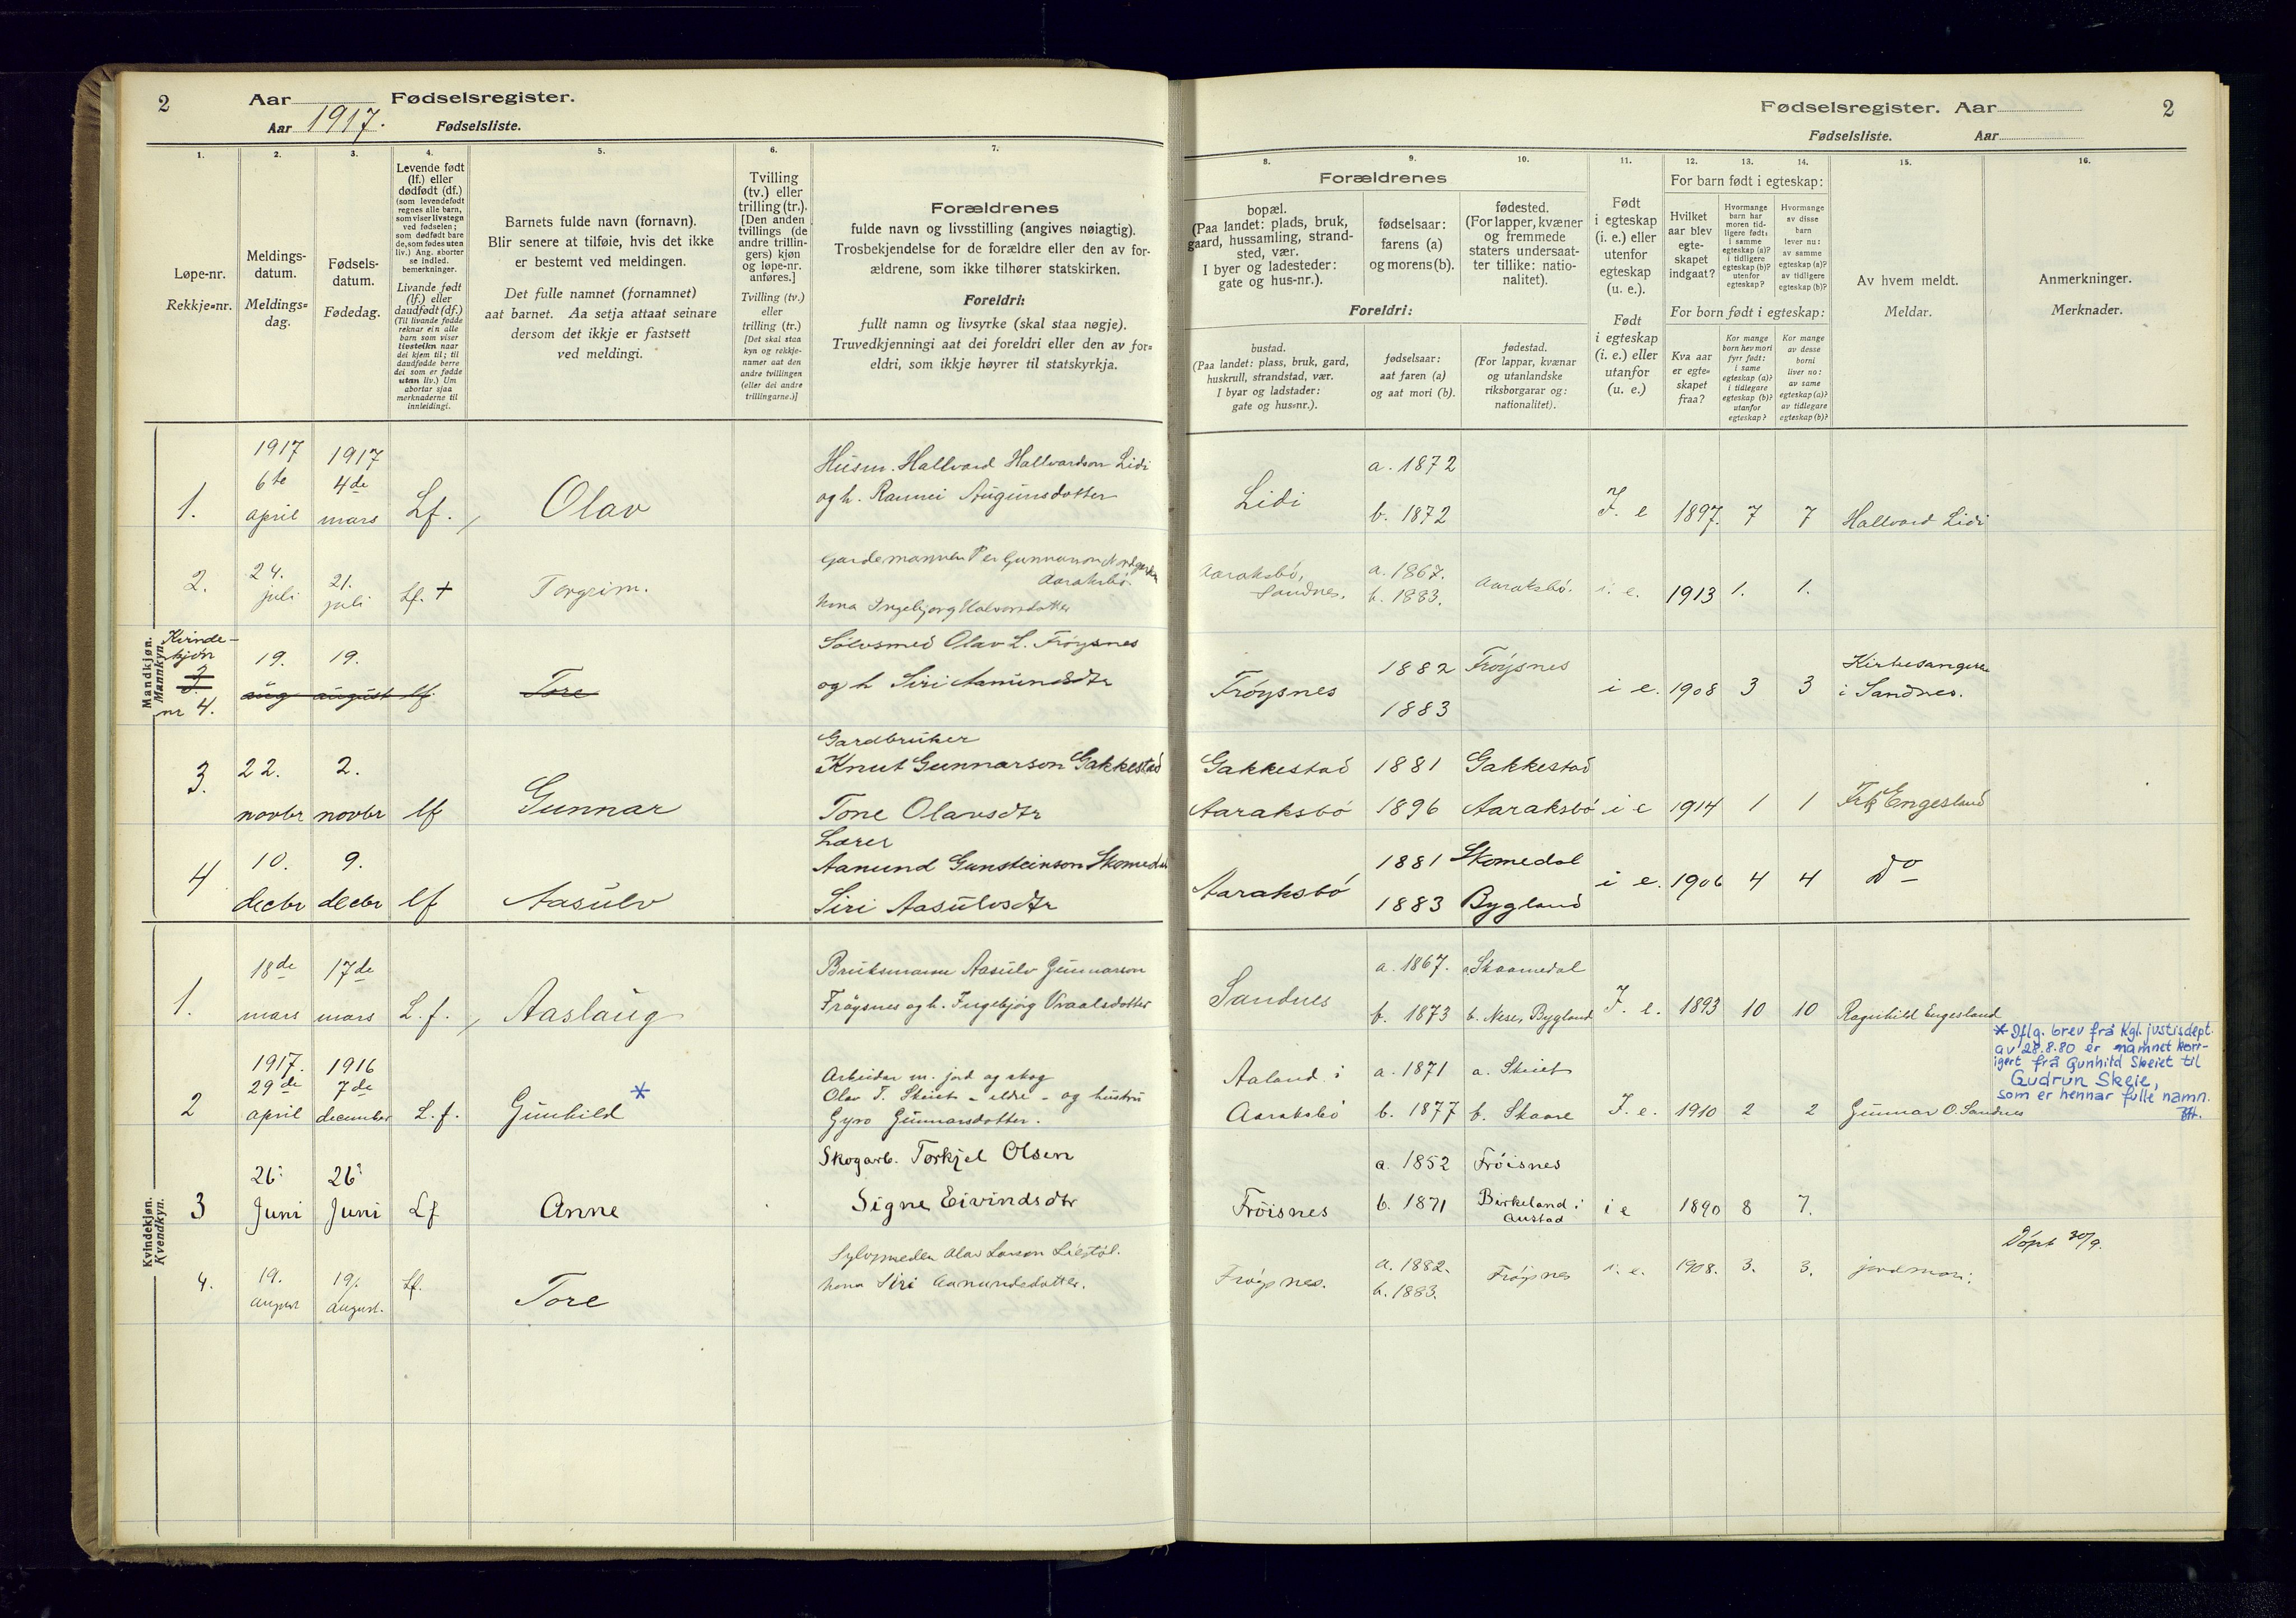 2 Aar Fødselsregister.
Aar 1917. Fødselsliste.
Fødselsregister. Aar 2
Fødselsliste. Aar
1. 2. 3. 4. 5. 6. 7.
8. 9. 10. 11. 12. 13. 14. 15. 16.
Løpe-nr.
Rekkje=nr.
Meldings-
datum.
Meldings=
dag.
Fødsels-
datum.
Fødedag.
Levende født
(lf.) eller
dødfødt (df.)
(som levendefødt
regnes alle barn,
som viser livstegn
ved fødselen;
som dødfødt bare
de, som fødes uten
liv.) Ang. aborter
se indled.
bemerkninger.
Livande født
(lf.) eller
daudfødt (df.)
(Til livande fødde
reknar ein alle
barn som viser
livsteikn naar
dei kjem til; til
daudfødde berre
dei som er fødde
utan liv.) Um
abortar sjaa
merknaderne til
innleidingi.
Barnets fulde navn (fornavn).
Blir senere at tilføie, hvis det ikke
er bestemt ved meldingen.
Det fulle namnet (fornamnet)
aat barnet. Aa setja attaat seinare
dersom det ikkje er fastsett
ved meldingi.
Tvilling
(tv.) eller
trilling (tr.).
[Den anden
tvillings (de
andre trillin-
gers) kjøn
og løpe-nr.
anføres.]
Tvilling (tv.)
eller
trilling (tr.)
[Det skal staa
kyn og rekkje-
numer aat den
andre tvillingen
(eller dei andre
trillingarne.)]
Forældrenes
fulde navn og livsstilling (angives nøiagtig).
Trosbekjendelse for de forældre eller den av for-
ældrene, som ikke tilhører statskirken.
Foreldri:
fullt namn og livsyrke (skal staa nøgje).
Truvedkjenningi aat dei foreldri eller den av for=
eldri, som ikkje høyrer til statskyrkja.
Forældrenes
bopæl.
(Paa landet: plads, bruk,
gaard, hussamling, strand-
sted, vær.
I byer og ladesteder:
gate og hus-nr.).
fødselsaar:
farens (a)
og morens (b).
fødested.
(For lapper, kvæner
og fremmede
staters undersaat-
ter tillike: natio-
nalitet).
Foreldri:
bustad.
(Paa landet: plass, bruk, gard,
huskrull, strandstad, vær.
I byar og ladstader:
gate og hus=nr.).
fødselsaar:
aat faren (a)
og aat mori (b).
fødestad.
(For lappar, kvænar
og utanlandske
riksborgarar og:
nationalitet).
Født
i egteskap
(i. e.) eller
utenfor
egteskap
(u. e.).
Født
i egteskap
(i. e.) eller
utanfor
(u. e.)
For barn født i egteskap:
Hvilket
aar blev
egte-
skapet
indgaat?
Hvormange
barn har
moren tid-
ligere født:
i samme
egteskap (a)?
i tidligere
egteskap (b)?
utenfor
egteskap?
Hvormange
av disse
barn
lever nu:
av samme
egteskap (a)?
av tidligere
egteskap (b)?
For born født i egteskap:
Kva aar
er egte=
skapet
fraa?
Kor mange
born hev mori
fyrr født:
i same
egteskap (a)?
i tidlegare
egteskap (b)?
utanfor
egteskap?
Kor mange
av desse
borni
liver no:
av same
egteskap (a)?
av tidlegare
egteskap (b)?
Av hvem meldt.
Meldar.
Anmerkninger.
Merknader.
Mandkjøn.
Mannkyn.
1. 1917 6te april 1917 4de mars Lf. Olav
Husm. Hallvard Hallvardson Lidi
og h. Rannei Augunsdotter
Lidi a. 1872 b. 1872 I. e 1897. 7 7 Hallvard Lidi
2. 24. juli 21. juli Lf. + Torgeim.
Gardemannen Per Gunnarson
Aaraksbø.
kona Ingebjorg Halvorsdotter
Aaraksbø, Sandnes. a. 1867. b. 1883. Aaraksbø. i. e. 1913 1. 1.
Kvinde-
kjøn
3
nr 4.
19. aug 19. august lf. Tore
Sølvsmed Olav L. Frøysnes
og h Siri Aamundsdtr
Frøysnes 1882 1883 Frøysnes i e. 1908 3 3 Kirkesangeren
i Sandnes.
3. 22. novbr 2. novbr lf Gunnar
Gardbruker
Knut Gunnarson Gakkestad
Tone Olavsdtr
Gakkestad 1881 Gakkestad
Aaraksbø 1896 Aaraksbø i e 1914 1 1 Frk Engesland
4 10. decbr 9. decbr lf Aasulv
Lærer
Aamund Gunsteinson Skomedal
Siri Aasulvsdtr
Aaraksbø 1881 Skomedal
1883 Bygland i e. 1906 4 4 do
Kvindekjøn.
Kvendkyn.
1. 18de mars 17de mars L. f. Aaslaug
Bruksmann Aasulv Gunnarson
Frøysnes og h. Ingebjørg Vraalsdotter
Sandnes a. 1867. a. Skaamedal
b. 1873 b. Nese, Bygland I. e. 1893 10 10 Ragnhild Engesland
2 1917. 29de april 1916 7de december L. f. Gunhild *
Arbeidar m. jord og skog
Olav T. Skeiet - eldre - og hustru
Gyro Gunnarsdotter.
Aaland i Aaraksbø a. 1871 a. Skeiet
b. 1877 b. Skaare I. e. 1910 2 2 Gunnar O. Sandnes
* Iflg. brev frå Kgl. justisdept.
av 28.8.80 er namnet korr-
igert frå Gunhild Skeiet til
Gudrun Skeie,
som er hennar fulle namn.
3 26. Juni 26. Juni Lf Anne
Skogarb. Torkjel Olsen
Signe Eivindsdtr
Frøisnes a. 1852 Frøisnes
b. 1871 Birkeland i
Austad i e 1890 8 7.
4. 19. august 19. august. Lf. Tore
Sylvsmeden Olav Larson Liestøl.
kona Siri Aamundsdotter.
Frøysnes. a. 1882. b. 1883. Frøysnes i. e. 1908. 3. 3. jordmori.
Døpt 30/9.